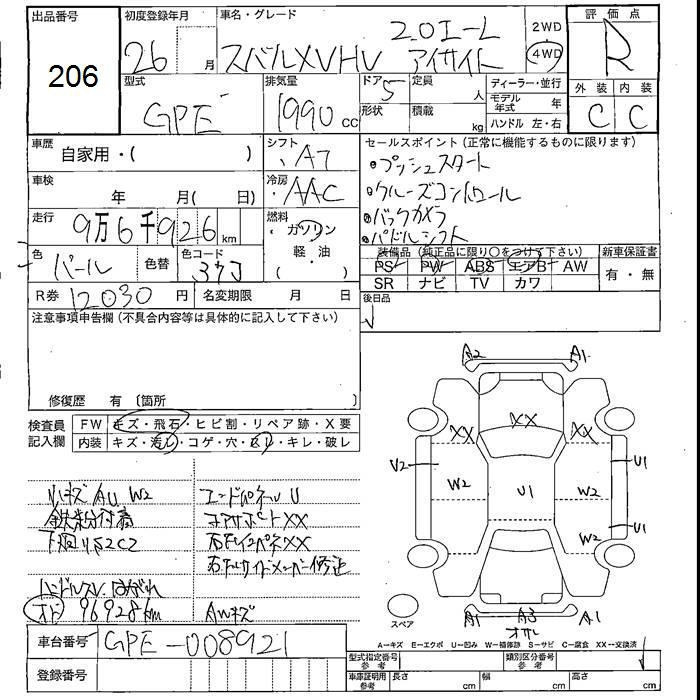 出品番号
206
初度登録年月
26 月
車名・グレード
2.0i-L
スバルXV HV アイサイト
2WD
4WD
評価点
R
型式
GPE
排気量
1990 cc
ドア
5
形状
定員
人
積載
kg
ディーラー・並行
モデル年式 年
ハンドル 左・右
外装 内装
C C
車歴
自家用・( )
シフト
AT
車検
年 月( 日)
冷房
AAC
走行
9万6千926km
燃料
ガソリン
軽・油
( ・ )
色
パール
色替
色コード
R券 12030 円
名変期限 月 日
セールスポイント (正常に機能するものに限ります)
●プッシュスタート
●クルーズコントロール
●バックカメラ
●パドルシフト
装備品 (純正品に限り○をつけて下さい)
PS PW ABS エアB AW
SR ナビ TV カワ
新車保証書
有・無
後日品
注意事項申告欄 (不具合内容等は具体的に記入して下さい)
修復歴 有 〔箇所 〕
検査員記入欄
FW キズ・飛石・ヒビ割・リペア跡・X要
内装 キズ・汚レ・コゲ・穴・スレ・キレ・破レ
小キズ AU W2
鉄粉付着
下廻りS2C2
ハンドルスレ はがれ
オド 96928km
エンドパネル U
コアサポートXX
右左インパネXX
右左サイドメンバー修正
AWキズ
A2 A1
XX
XX XX
V2 W2 U1 U1
W2
W2 U1
A1 A3 A1
スペア
A=キズ E=エクボ U=凹み W=補修跡 S=サビ C=腐食 XX=交換済
車台番号 GPE-008921
登録番号
型式指定番号 参考
類別区分番号 参考
車庫証明用 参考 長さ cm 幅 cm 高さ cm